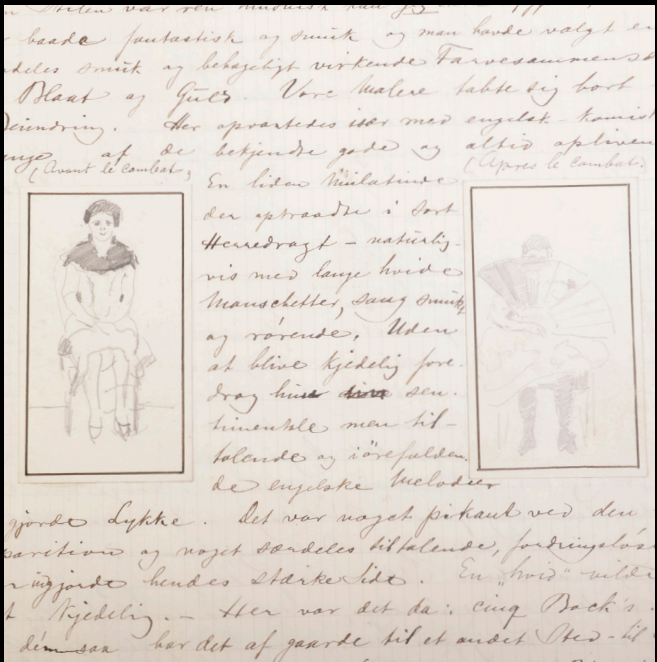 Stilen var ren
baade fantastisk og smuk og man havde valgt e
deles smuk og behageligt virkende Farvesammenst
Blaat og Guld. Vore Malere tabte sig bort
Her opvartedes især med engelsk-komisk
af de bekjendte gode og altid opliven
(Avant le combat)
(Après le combat)
En liden Mulatinde
der optraadte i sort
Herredragt – naturlig-
vis med lange hvide
Manschetter, sang smukt
og rørende. Uden
at blive kjedelig fore-
drog hun sen-
timentale men til-
talende og iørefalden-
de engelske Melodier
gjorde Lykke. Det var noget pikant ved den
parition og noget særdeles tiltalende, fordringsløst
udgjorde hendes stærke Side. En "hvid" vilde
t kjedelig. – Her var det da: cinq Bock's.
bar det af gaarde til et andet Sted – til